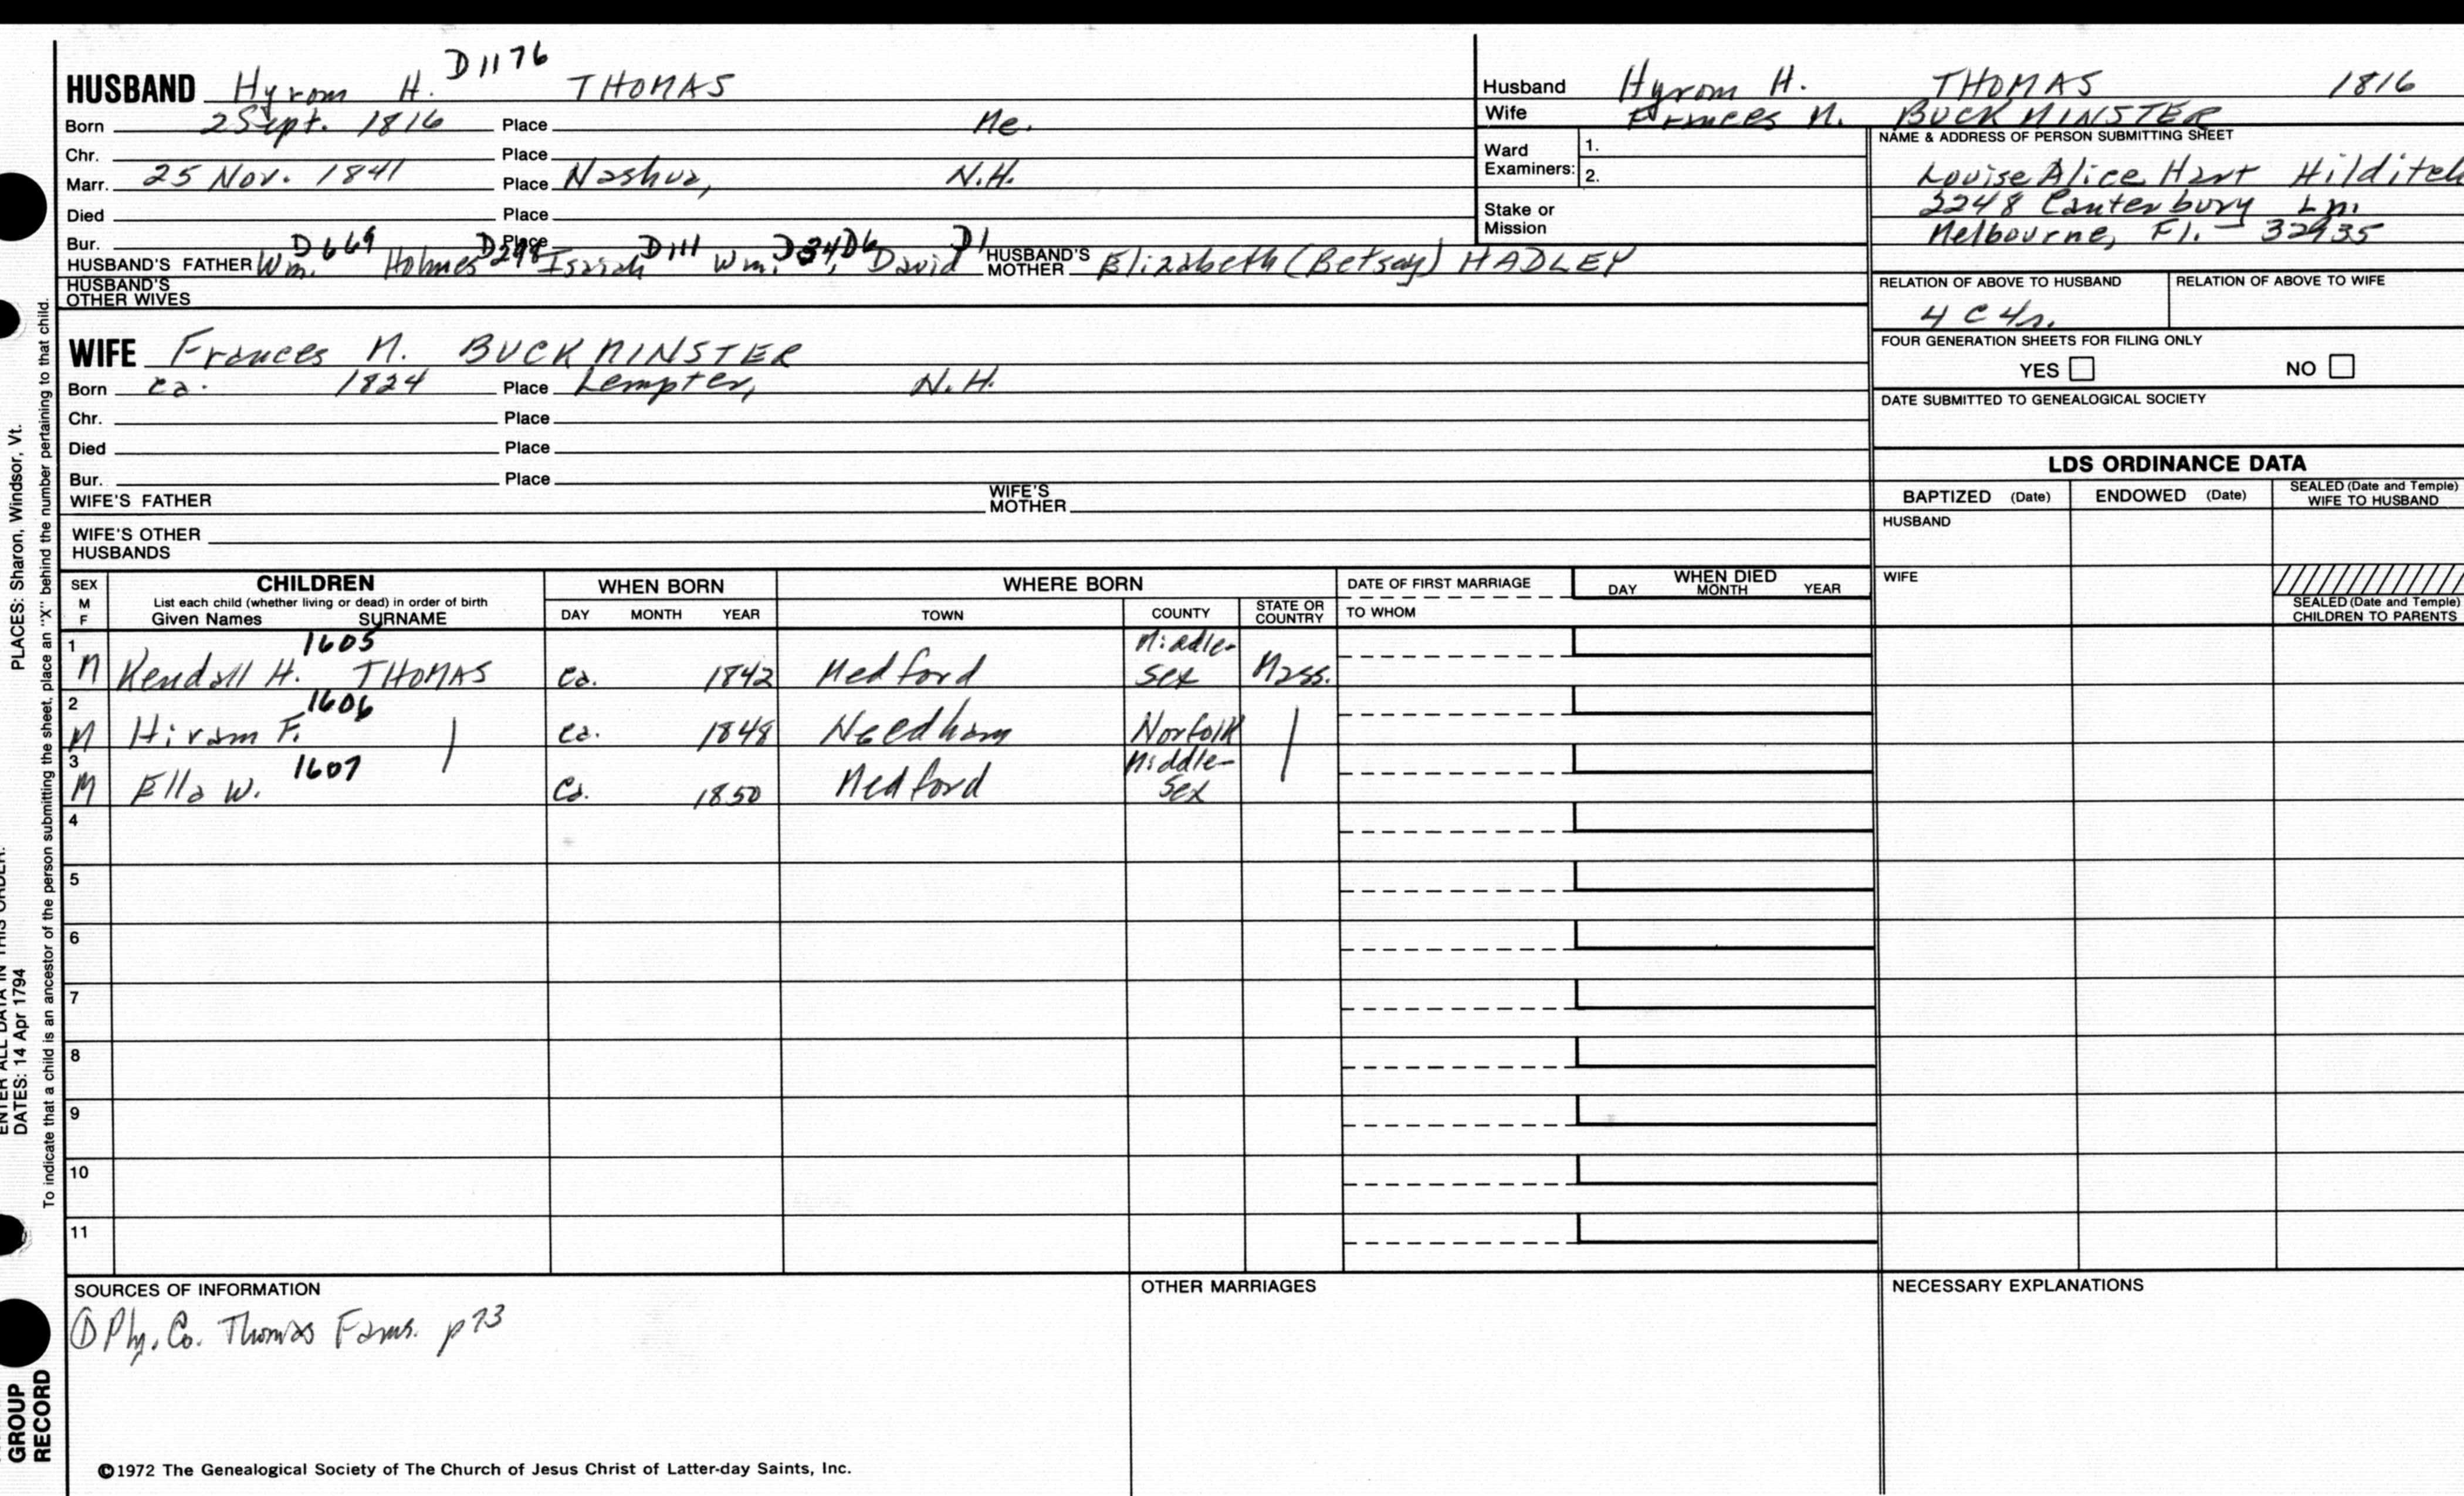 D1176
HUSBAND Hyrom H. THOMAS
Born 2 Sept. 1816 Place Me.
Chr. Place
Marr. 25 Nov. 1841 Place Nashua, N.H.
Died Place
Bur. Place
D669 D298 D111 D34 D6 D1
HUSBAND'S FATHER Wm. Holmes Isaiah Wm. David HUSBAND'S MOTHER Elizabeth (Betsey) HADLEY
HUSBAND'S OTHER WIVES
WIFE Frances M. BUCKMINSTER
Born ca. 1824 Place Lempter, N.H.
Chr. Place
Died Place
Bur. Place
WIFE'S FATHER WIFE'S MOTHER
WIFE'S OTHER HUSBANDS
Husband Hyrom H. THOMAS 1816
Wife Frances M. BUCKMINSTER
Ward Examiners: 1.
2.
Stake or Mission
NAME & ADDRESS OF PERSON SUBMITTING SHEET
Louise Alice Hart
2248 Canterbury Ln.
Melbourne, Fl. - 32935
RELATION OF ABOVE TO HUSBAND RELATION OF ABOVE TO WIFE
4 C 4r.
FOUR GENERATION SHEETS FOR FILING ONLY
YES NO
DATE SUBMITTED TO GENEALOGICAL SOCIETY
LDS ORDINANCE DATA
BAPTIZED (Date) ENDOWED (Date) SEALED (Date and Temple) WIFE TO HUSBAND
HUSBAND
WIFE
SEALED (Date and Temple) CHILDREN TO PARENTS
SEX M F CHILDREN WHEN BORN WHERE BORN DATE OF FIRST MARRIAGE WHEN DIED
List each child (whether living or dead) in order of birth
Given Names SURNAME DAY MONTH YEAR TOWN COUNTY STATE OR COUNTRY TO WHOM DAY MONTH YEAR
1 1605
M Kendall H. THOMAS ca. 1842 Medford Middle-sex Mass.
2 1606
M Hiram F. | ca. 1848 Needham Norfolk |
3 1607
M Ella W. ca. 1850 Medford Middle-sex
4
5
6
7
8
9
10
11
SOURCES OF INFORMATION
① Ply. Co. Thomas Fams. p73
OTHER MARRIAGES
NECESSARY EXPLANATIONS
©1972 The Genealogical Society of The Church of Jesus Christ of Latter-day Saints, Inc.
PLACES: Sharon, Windsor, Vt.
DATES: 14 Apr 1794
To indicate that a child is an ancestor of the person submitting the sheet, place an "X" behind the number pertaining to that child.
GROUP
RECORD